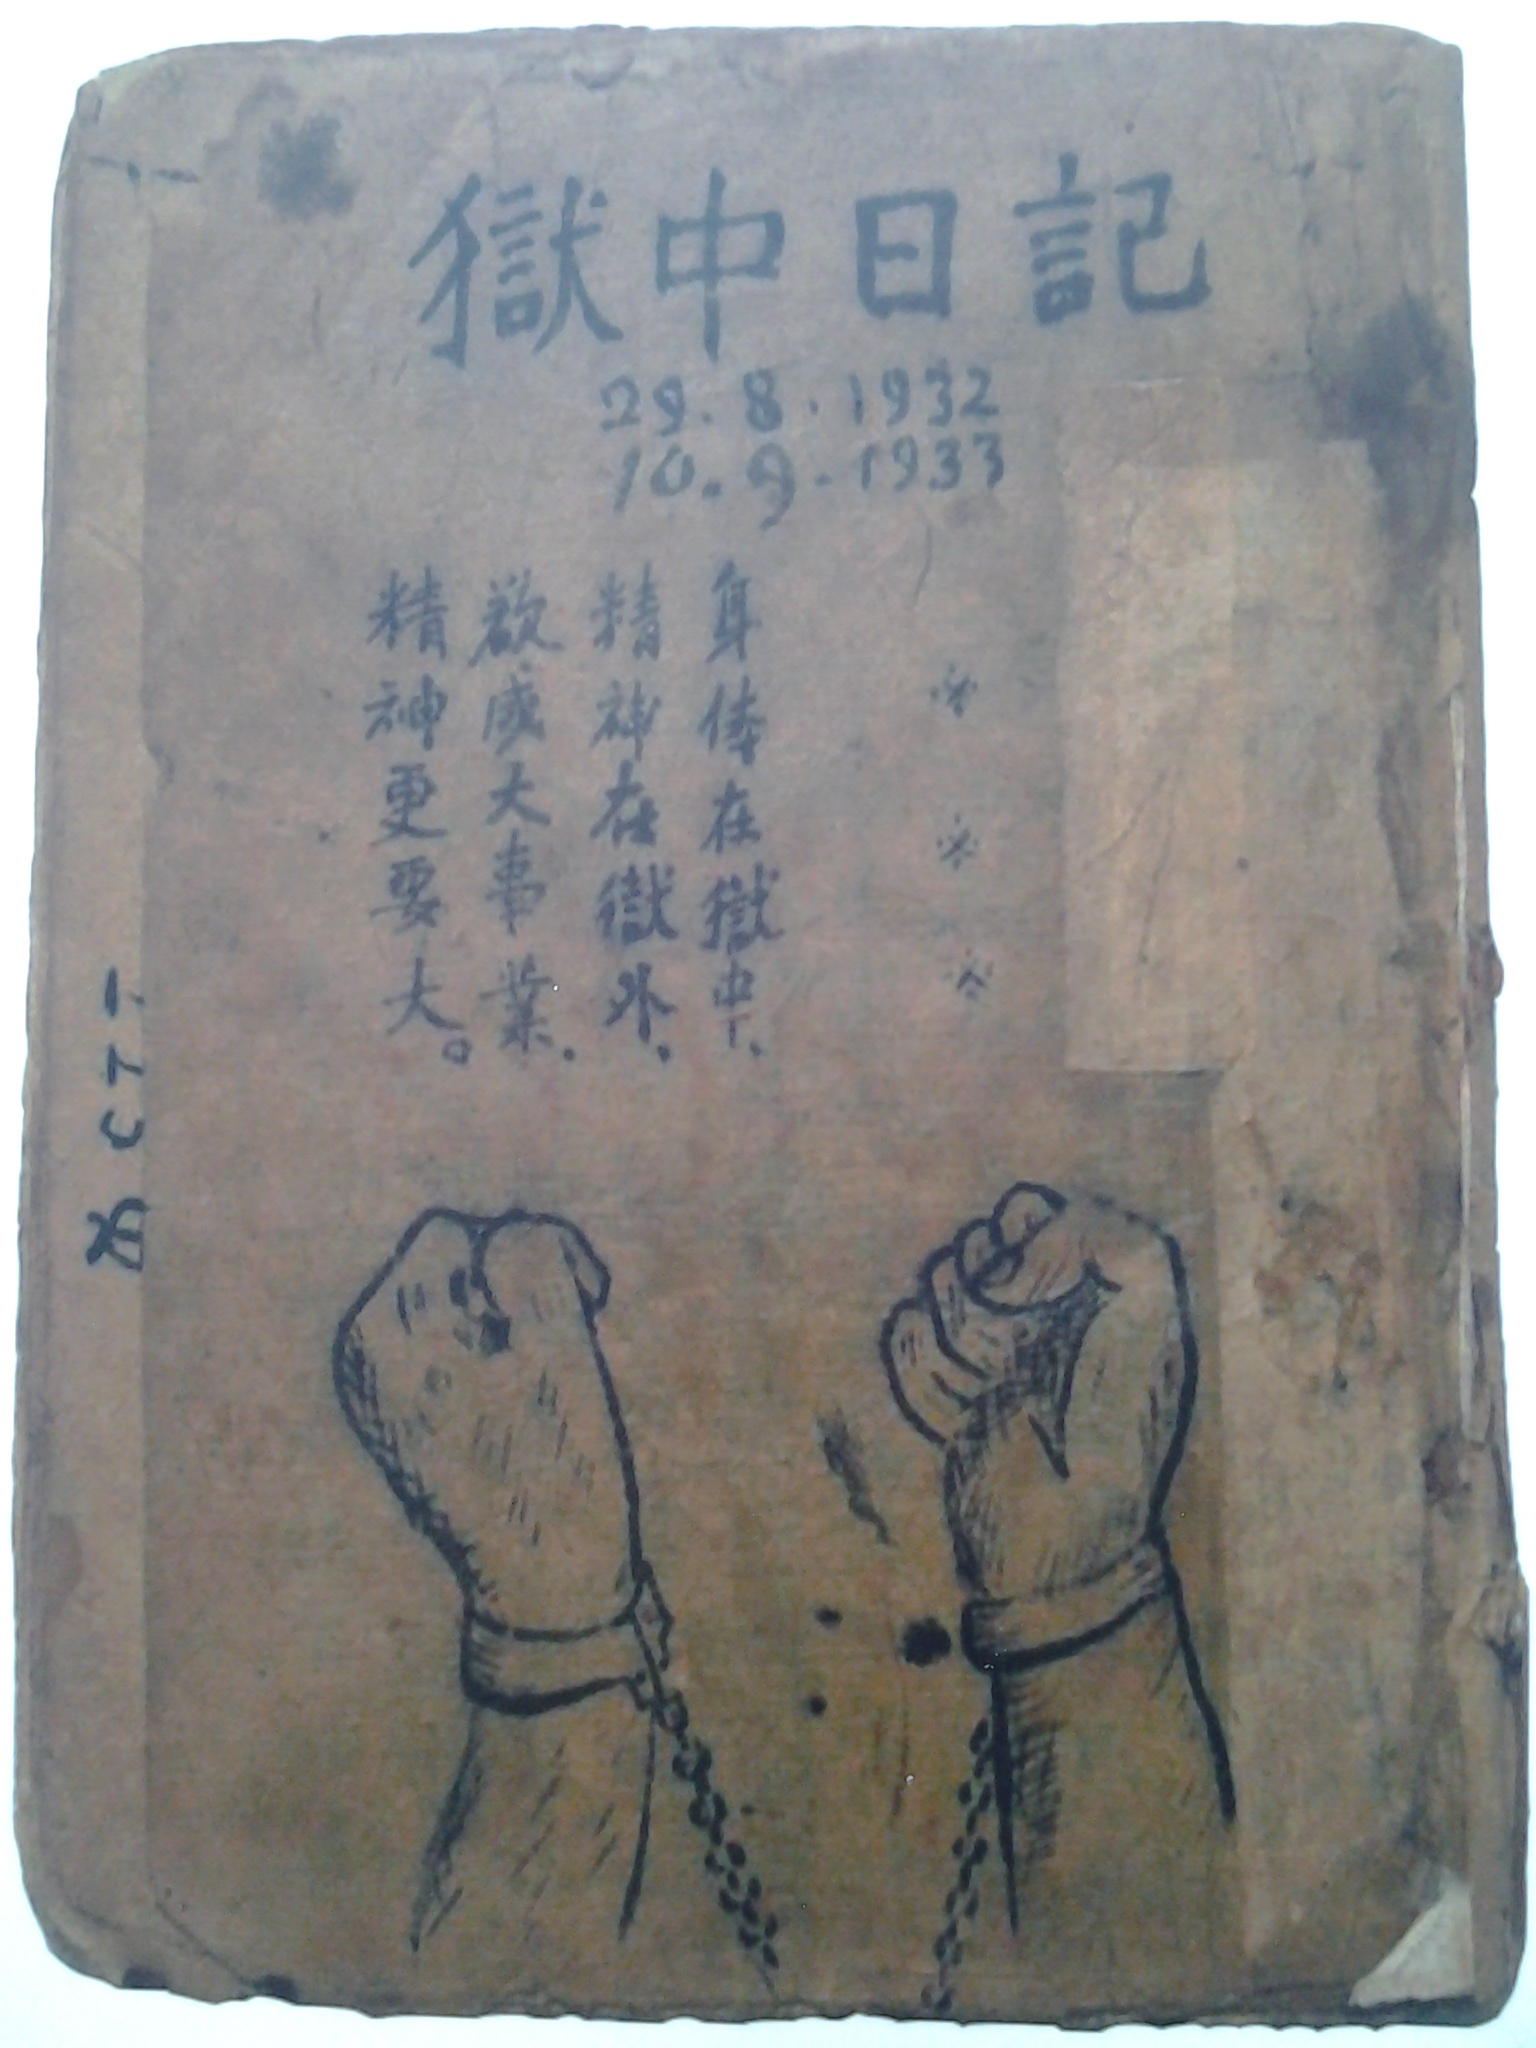 獄中日記
29.8.1932
10.9.1933
※ ※ ※
身体在獄中.
精神在獄外.
欲成大事業.
精神更要大。
CT 1.